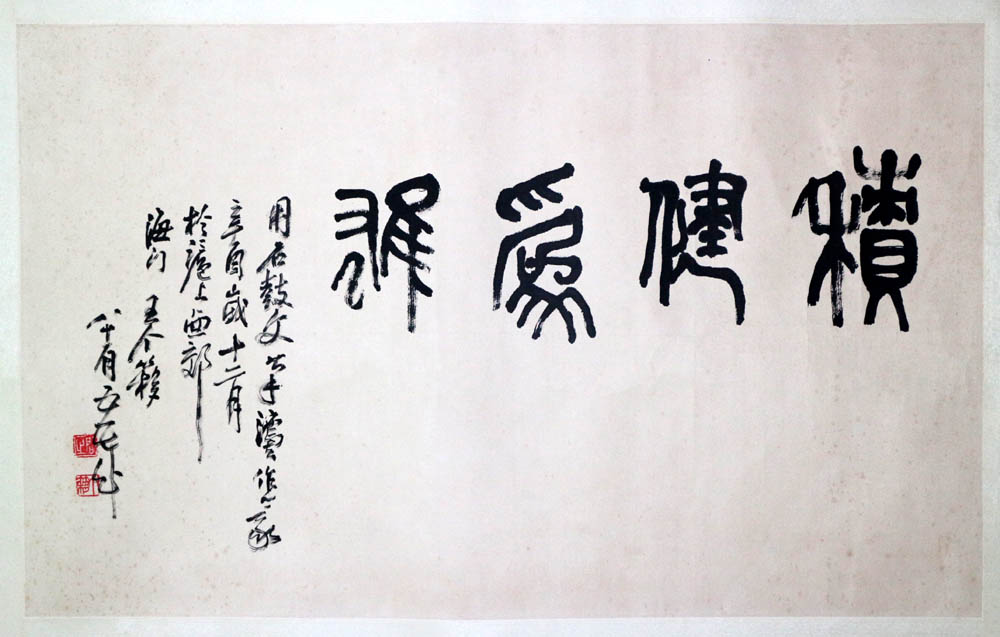 積健爲雄
用石鼓文筆
作篆
辛酉歲十二月
於滬上西郊
海門王个簃
八十有五